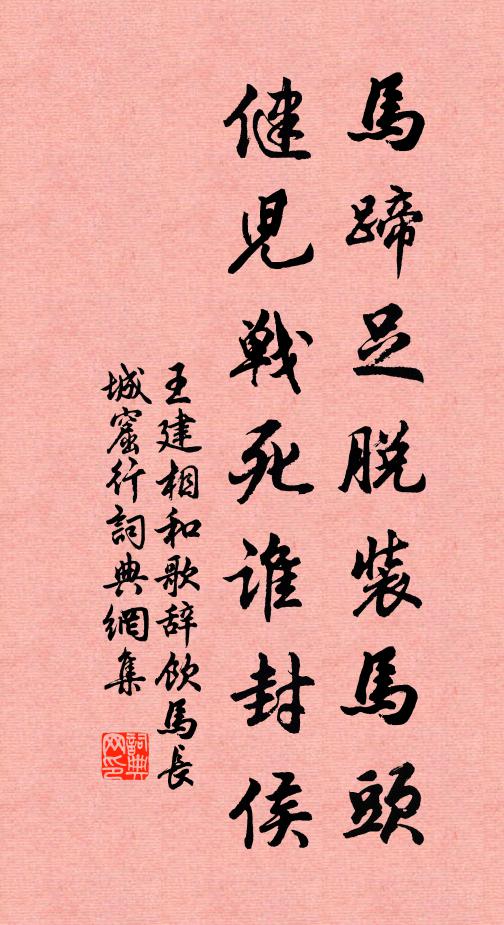 馬蹄足脱装馬頭
健児戦死誰封侯
王建相和歌辞飲馬長
城窟行詞典網集
詞典网印